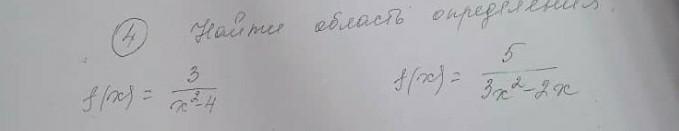 ④ Найти область определения.
f(x) = 3/(x²-4)    f(x) = 5/(3x²-2x)